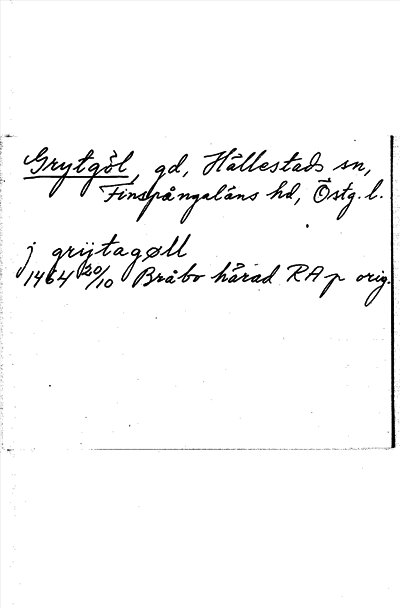 Grytgöl, gd, Hällestads sn,
Finspångaläns hd, Östg. l.
j grijtagøll
1464 20/10 Bråbo härad RA p orig.